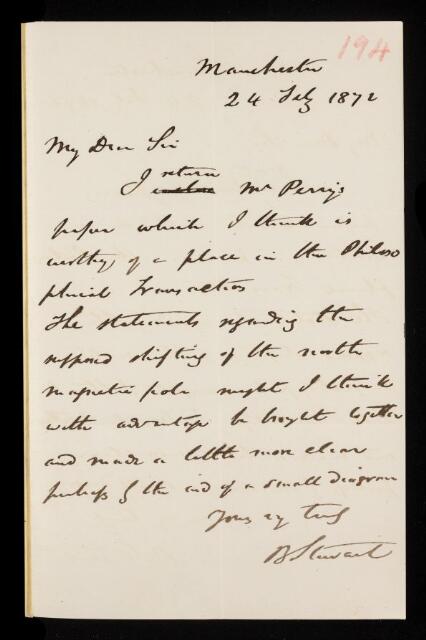 194
Manchester
24 Feby 1872
My Dear Sir
I return Mr Perry's
paper which I think is
worthy of a place in the Philoso
phical Transactions
The statements regarding the
supposed shifting of the north
magnetic pole might I think
with advantage be brought together
and made a little more clear
perhaps by the aid of a small diagram
Yours very truly
B Stewart